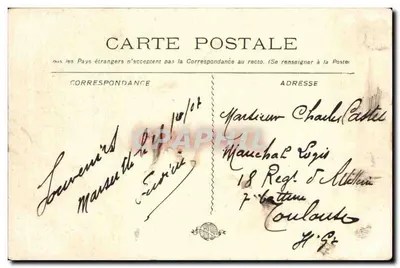 CARTE POSTALE
les Pays étrangers n'acceptent pas la Correspondance au recto. (Se renseigner à la Poste)
CORRESPONDANCE
ADRESSE
Souvenirs
Marseille le
Monsieur Charles Castel
Marechal Logis
18 Regt d'Artillerie
7 batterie
Toulouse
Hte Gne